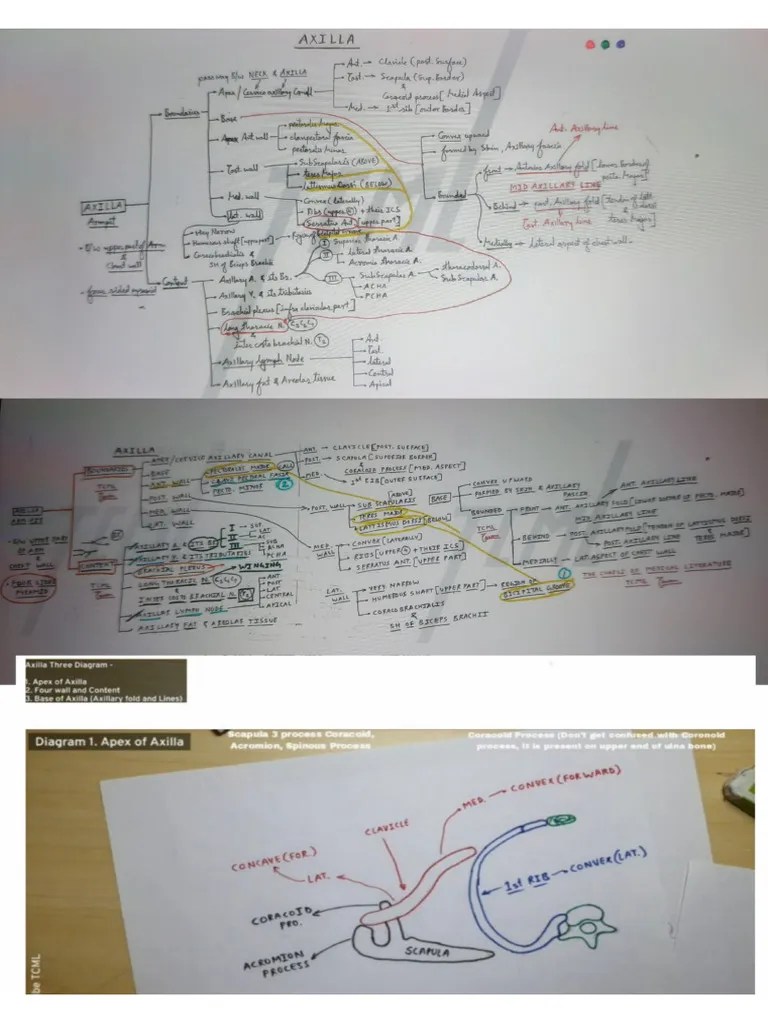 AXILLA
passing B/w NECK & AXILLA
Ant. → Clavicle (post. Surface)
Post. → Scapula (Sup. Border)
&
Coracoid process [Medial Aspect]
Med. → 1st rib [outer Border]
Apex / Cervico axillary Canal
Boundaries
Base
Apex Ant wall
pectoralis Major
clavipectoral fascia
pectoralis Minor
Post. wall
SubScapularis (ABOVE)
teres Major
lattissimus Dorsi (BELOW)
Med. wall
Convex (laterally)
Ribs (upper 4) + their ICS
Serratus Ant. [upper part]
Lat. wall
Very Narrow
Humerous shaft [upper part]
Coracobrachialis
&
SH of Biceps Brachii
Convex upward
formed by Skin, Axillary fascia
Bounded
Ant. Axillary line
front → Anterior Axillary fold [lower Border of
MID AXILLARY LINE
Behind → post. Axillary fold [Tendon of
Post. Axillary line
teres Major]
Medially → lateral aspect of chest wall
AXILLA
Armpit
B/w upper part of Arm
&
Chest wall
four sided pyramid
Content
Axillary A. & its Br.
I Superior thoracic A.
II
lateral thoracic A.
Acromio thoracic A.
III
SubScapular A.
thoracodorsal A.
SubScapular A.
ACHA
PCHA
Axillary V. & its tributaries
Brachial plexus [infra clavicular part]
Long thoracic N. C5C6C7
&
Inter costo brachial N. T2
Axillary lymph Node
Ant.
Post.
lateral
Central
Apical
Axillary fat & Areolar tissue
AXILLA
BOUNDARIES
APEX / CERVICO AXILLARY CANAL
ANT. → CLAVICLE [POST. SURFACE]
POST. → SCAPULA [SUPERIOR BORDER]
&
CORACOID PROCESS [MED. ASPECT]
MED. → 1st RIB [OUTER SURFACE]
BASE
ANT. WALL
PECTORALIS MAJOR
PECTO. MINOR
POST. WALL
MED. WALL
LAT. WALL
TCML
POST. WALL
[ABOVE]
SUB SCAPULARIS
TERES MAJOR
LATTISSIMUS DORSI [BELOW]
BASE
CONVEX UPWARD
FORMED BY SKIN & AXILLARY
FASCIA
BOUNDED
ANT. AXILLARY LINE
FRONT → ANT. AXILLARY FOLD [LOWER BORDER OF PECTO. MAJOR]
MID AXILLARY LINE
BEHIND → POST. AXILLARY FOLD [TENDON OF LATTISIMUS DORSI
POST. AXILLARY LINE TERES MAJOR]
MEDIALLY → LAT. ASPECT OF CHEST WALL
TCML
AXILLA
ARM PIT
B/W UPPER PART
OF ARM
&
CHEST WALL
FOUR SIDED
PYRAMID
CONTENT
TCML
AXILLARY A & ITS BR
I
II
III
LAT.
AC
SUB
ACHA
PCHA
AXILLARY V & ITS TRIBUTARIES
BRACHIAL PLEXUS → WINGING
LONG THORACIC N. C5C6C7
&
INTER COSTO BRACHIAL N. T2
AXILLARY LYMPH NODE
ANT
POST
LAT.
CENTRAL
APICAL
AXILLARY FAT & AREOLAR TISSUE
MED.
WALL
CONVEX (LATERALLY)
RIBS [UPPER 4] + THEIR ICS
SERRATUS ANT. [UPPER PART]
LAT.
WALL
VERY NARROW
HUMEROUS SHAFT [UPPER PART] → REGION OF
BICIPITAL GROOVE
CORACOBRACHIALIS
&
SH OF BICEPS BRACHII
THE CHAPLE OF MEDICAL LITERATURE
TCML
Axilla Three Diagram -
1. Apex of Axilla
2. Four wall and Content
3. Base of Axilla (Axillary fold and Lines)
Diagram 1. Apex of Axilla
Scapula 3 process Coracoid,
Acromion, Spinous Process
Coracoid Process (Don't get confused with Coronoid
process, it is present on upper end of ulna bone)
MED. → CONVEX (FORWARD)
CLAVICLE
CONCAVE (FOR.)
LAT.
1st RIB → CONVEX (LAT.)
CORACOID
PRO.
ACROMION
PROCESS
SCAPULA
be TCML